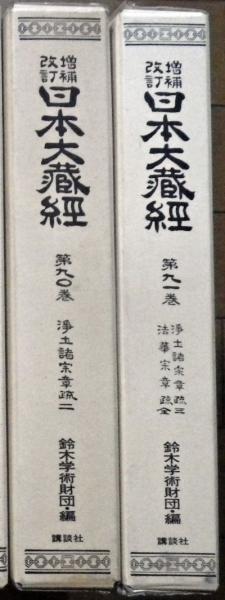 増補
改訂
日本大蔵経
第九〇巻
浄土諸宗章疏二
鈴木学術財団・編
講談社
増補
改訂
日本大蔵経
第九一巻
浄土諸宗章疏三
法華宗章疏全
鈴木学術財団・編
講談社